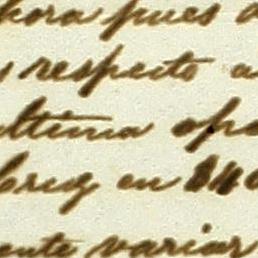 hora pues
respecto a
ultima ope
en 840
ente variar